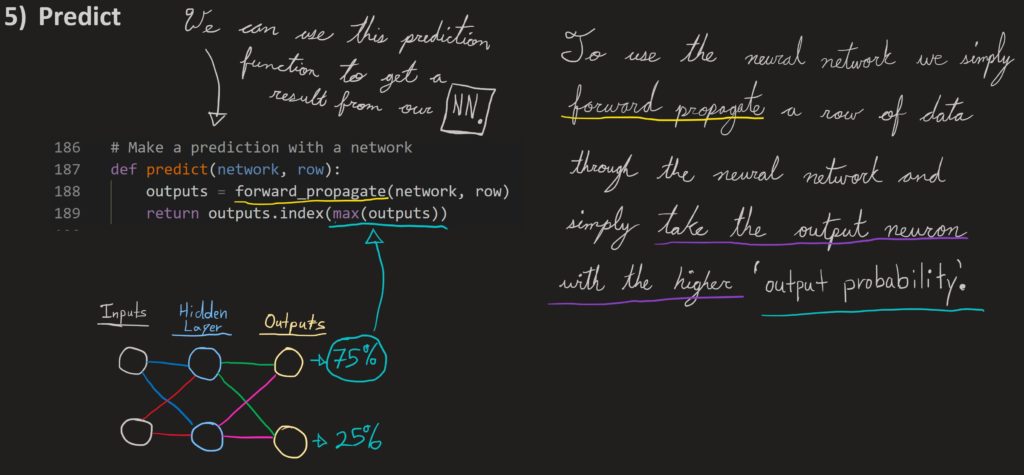 5) Predict
We can use this prediction
function to get a
result from our NN.
186 # Make a prediction with a network
187 def predict(network, row):
188 outputs = forward_propagate(network, row)
189 return outputs.index(max(outputs))
To use the neural network we simply
forward propagate a row of data
through the neural network and
simply take the output neuron
with the higher 'output probability'.
Inputs
Hidden
Layer
Outputs
75%
25%